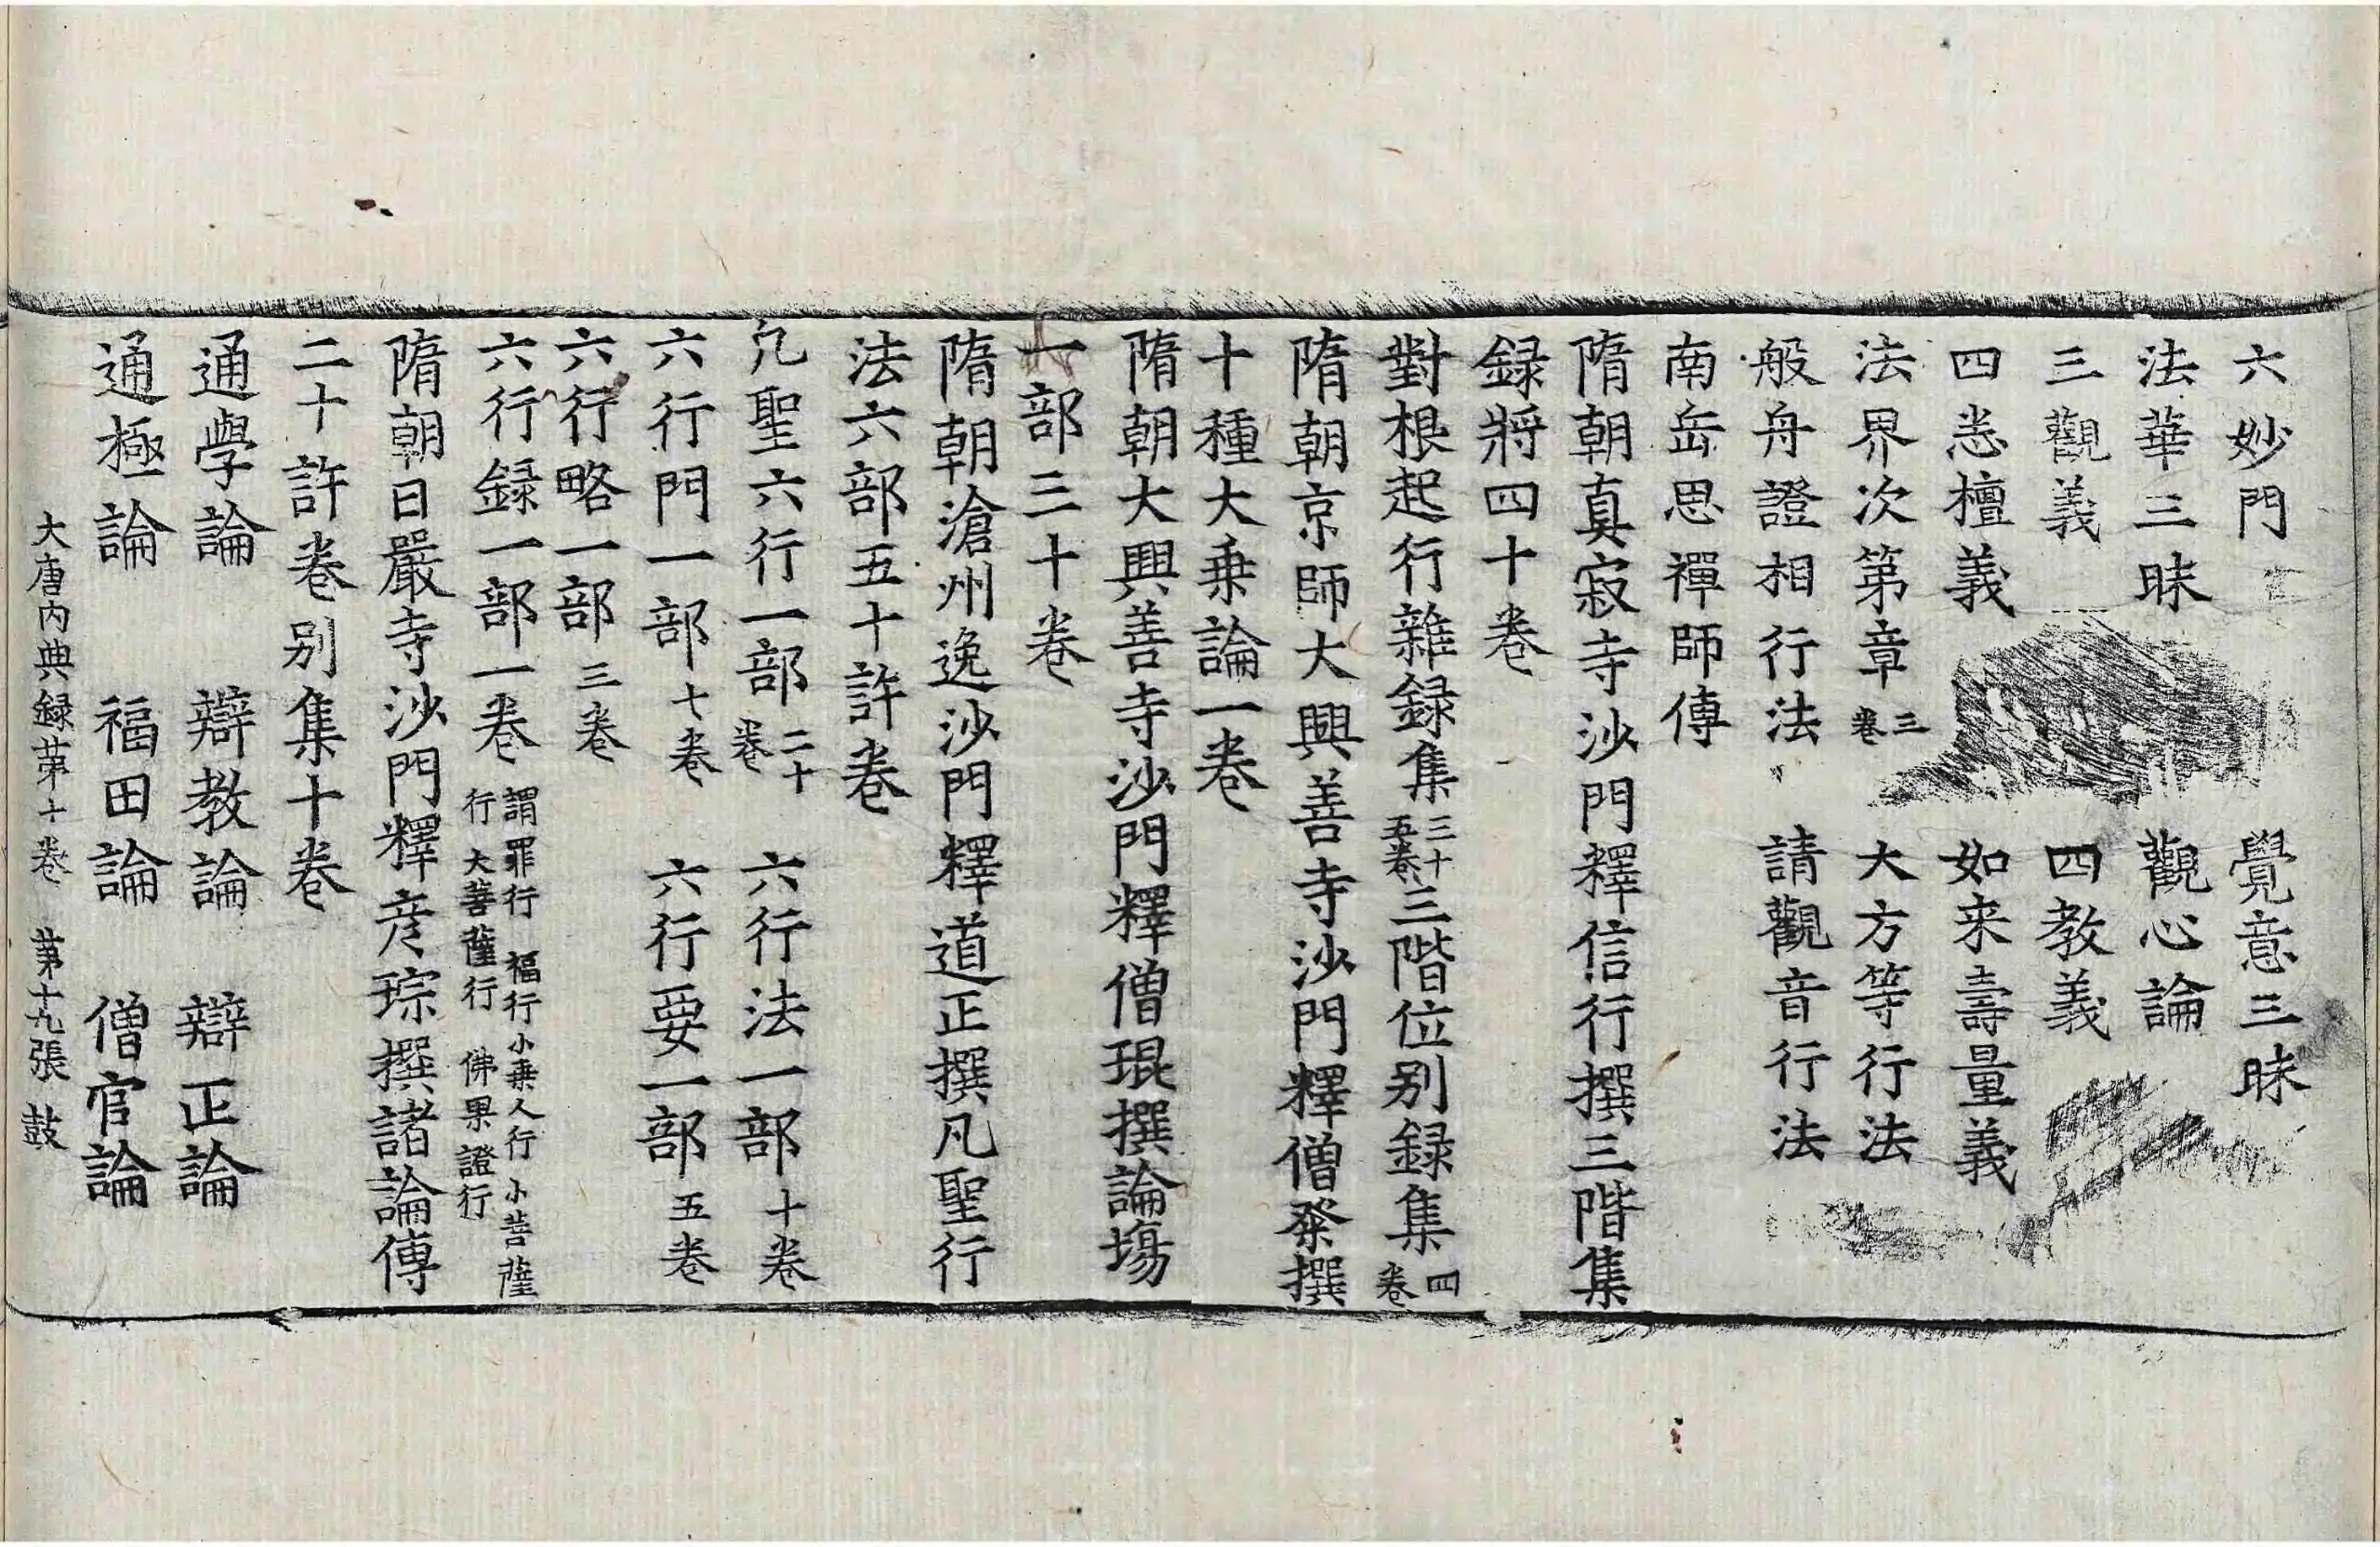 六妙門　覺意三昧
法華三昧　觀心論
三觀義　四教義
四悉檀義　如来壽量義
法界次第章三卷　大方等行法
般舟證相行法　請觀音行法
南岳思禪師傳
隋朝真寂寺沙門釋信行撰三階集
録將四十卷
對根起行雜録集三十五卷三階位别録集四卷
隋朝京師大興善寺沙門釋僧粲撰
十種大乗論一卷
隋朝大興善寺沙門釋僧琨撰論塲
一部三十卷
隋朝滄州逸沙門釋道正撰凡聖行
法六部五十許卷
凡聖六行一部二十卷　六行法一部十卷
六行門一部七卷　六行要一部五卷
六行略一部三卷
六行録一部一卷謂罪行　福行小乗人行小菩薩行大菩薩行　佛果證行
隋朝日嚴寺沙門釋彦琮撰諸論傳
二十許卷别集十卷
通學論　辯教論　辯正論
通極論　福田論　僧官論
大唐内典録苐十卷　苐十九張　鼓